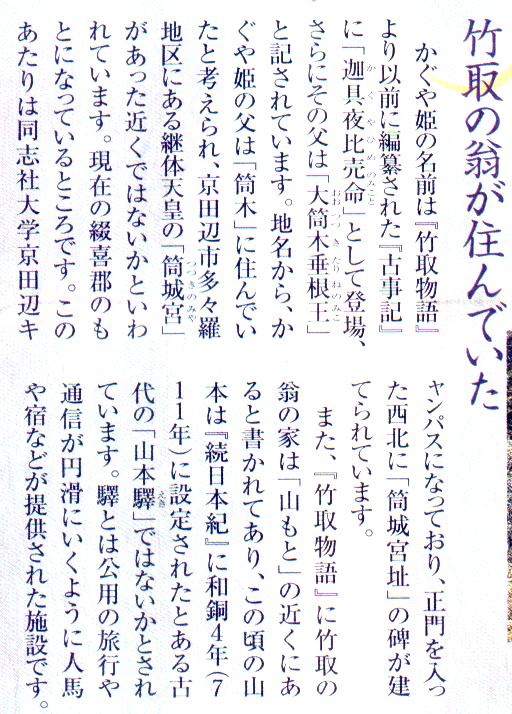 竹取の翁が住んでいた
かぐや姫の名前は『竹取物語』
より以前に編纂された『古事記』
に「迦具夜比売命」として登場、
さらにその父は「大筒木垂根王」
と記されています。地名から、か
ぐや姫の父は「筒木」に住んでい
たと考えられ、京田辺市多々羅
地区にある継体天皇の「筒城宮」
があった近くではないかといわ
れています。現在の綴喜郡のも
とになっているところです。この
あたりは同志社大学京田辺キ
ャンパスになっており、正門を入っ
た西北に「筒城宮址」の碑が建
てられています。
また、『竹取物語』に竹取の
翁の家は「山もと」の近くにあ
ると書かれてあり、この頃の山
本は『続日本紀』に和銅4年(7
11年)に設定されたとある古
代の「山本驛」ではないかとされ
ています。驛とは公用の旅行や
通信が円滑にいくように人馬
や宿などが提供された施設です。